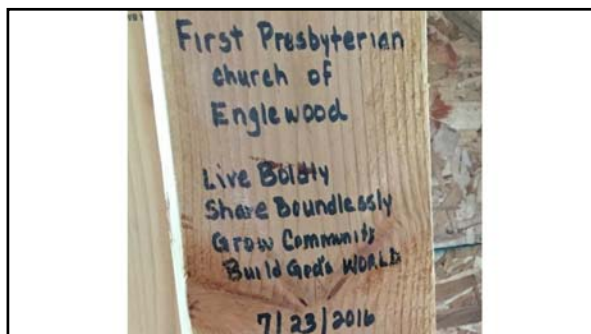 First Presbyterian
church of
Englewood
Live Boldly
Share Boundlessly
Grow Community
Build God's WORLD
7/23/2016